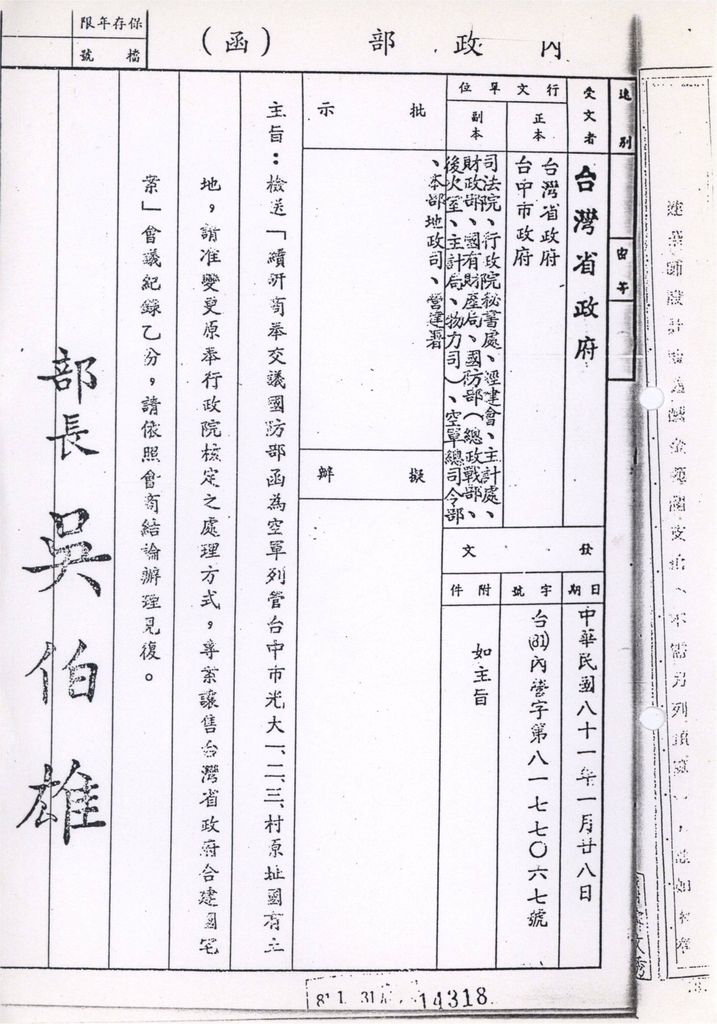 內政部（函）
保存年限
檔號
速別
受文者
台灣省政府
行文單位
正本
台灣省政府
台中市政府
副本
司法院、行政院秘書處、經建會、主計處、
財政部、國有財產局、國防部（總政戰部、
後次室、主計局、物力司）、空軍總司令部
、本部地政司、營建署
發文
日期
中華民國八十一年一月廿八日
字號
台(81)內營字第八一七七〇六七號
附件
如主旨
批示
擬辦
主旨：檢送「續研商奉交議國防部函為空軍列管台中市光大一、二、三、村原址國有土
地，請准變更原奉行政院核定之處理方式，專案讓售台灣省政府合建國宅
案」會議紀錄乙分，請依照會商結論辦理見復。
部長 吳伯雄
81. 1. 31
14318